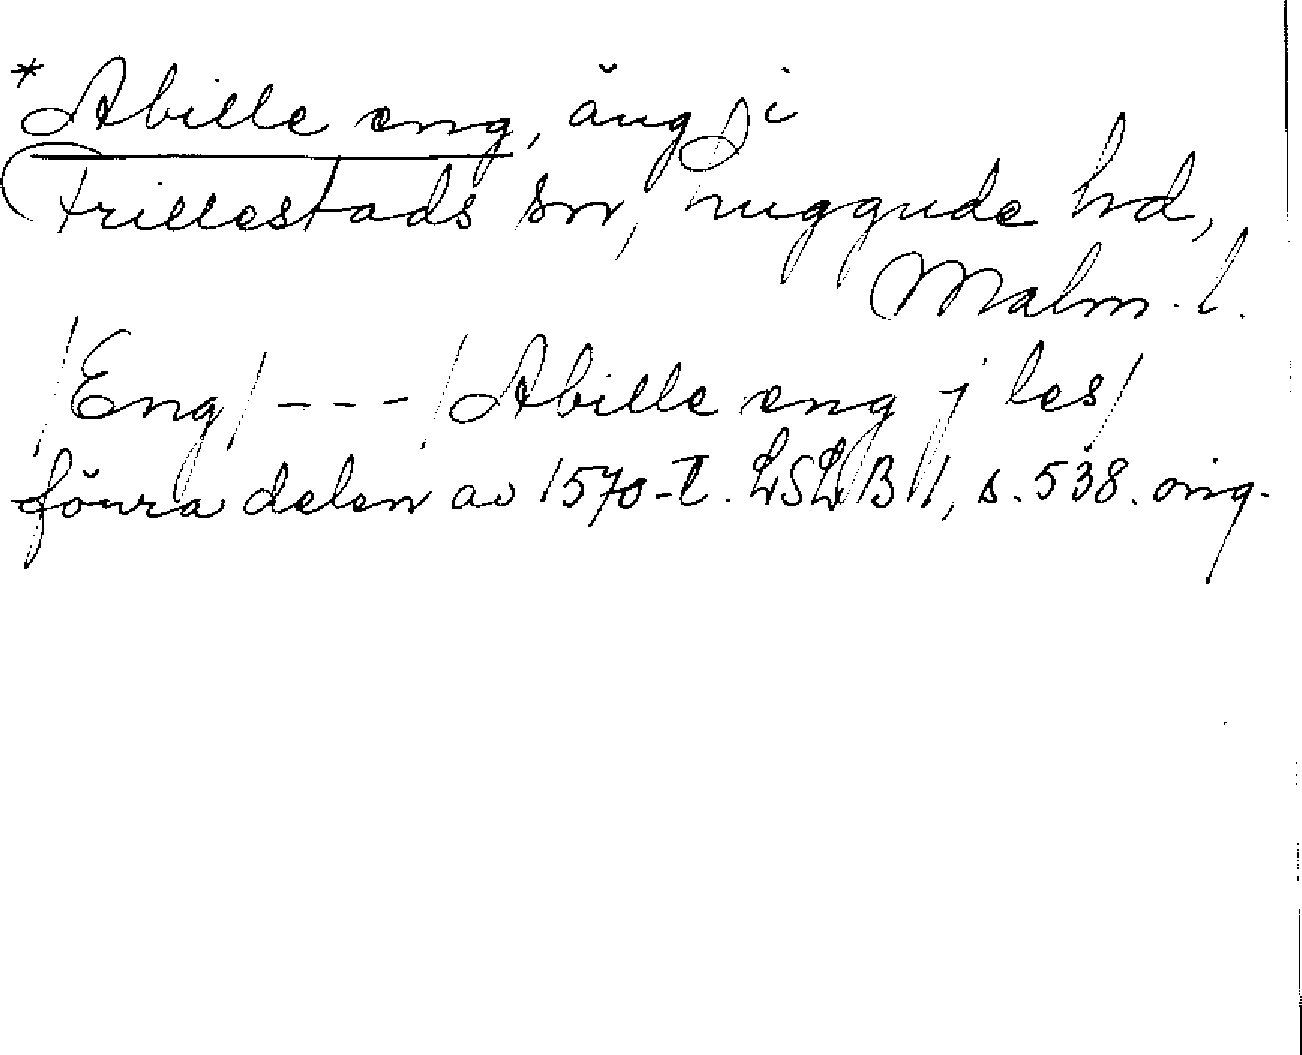 *Abille eng, äng i
Frillestads sn, Luggude hd,
Malm. l.
/Eng/ - - - /Abille eng j les/
förra delen av 1570-t. LSLB II, s. 538. orig.